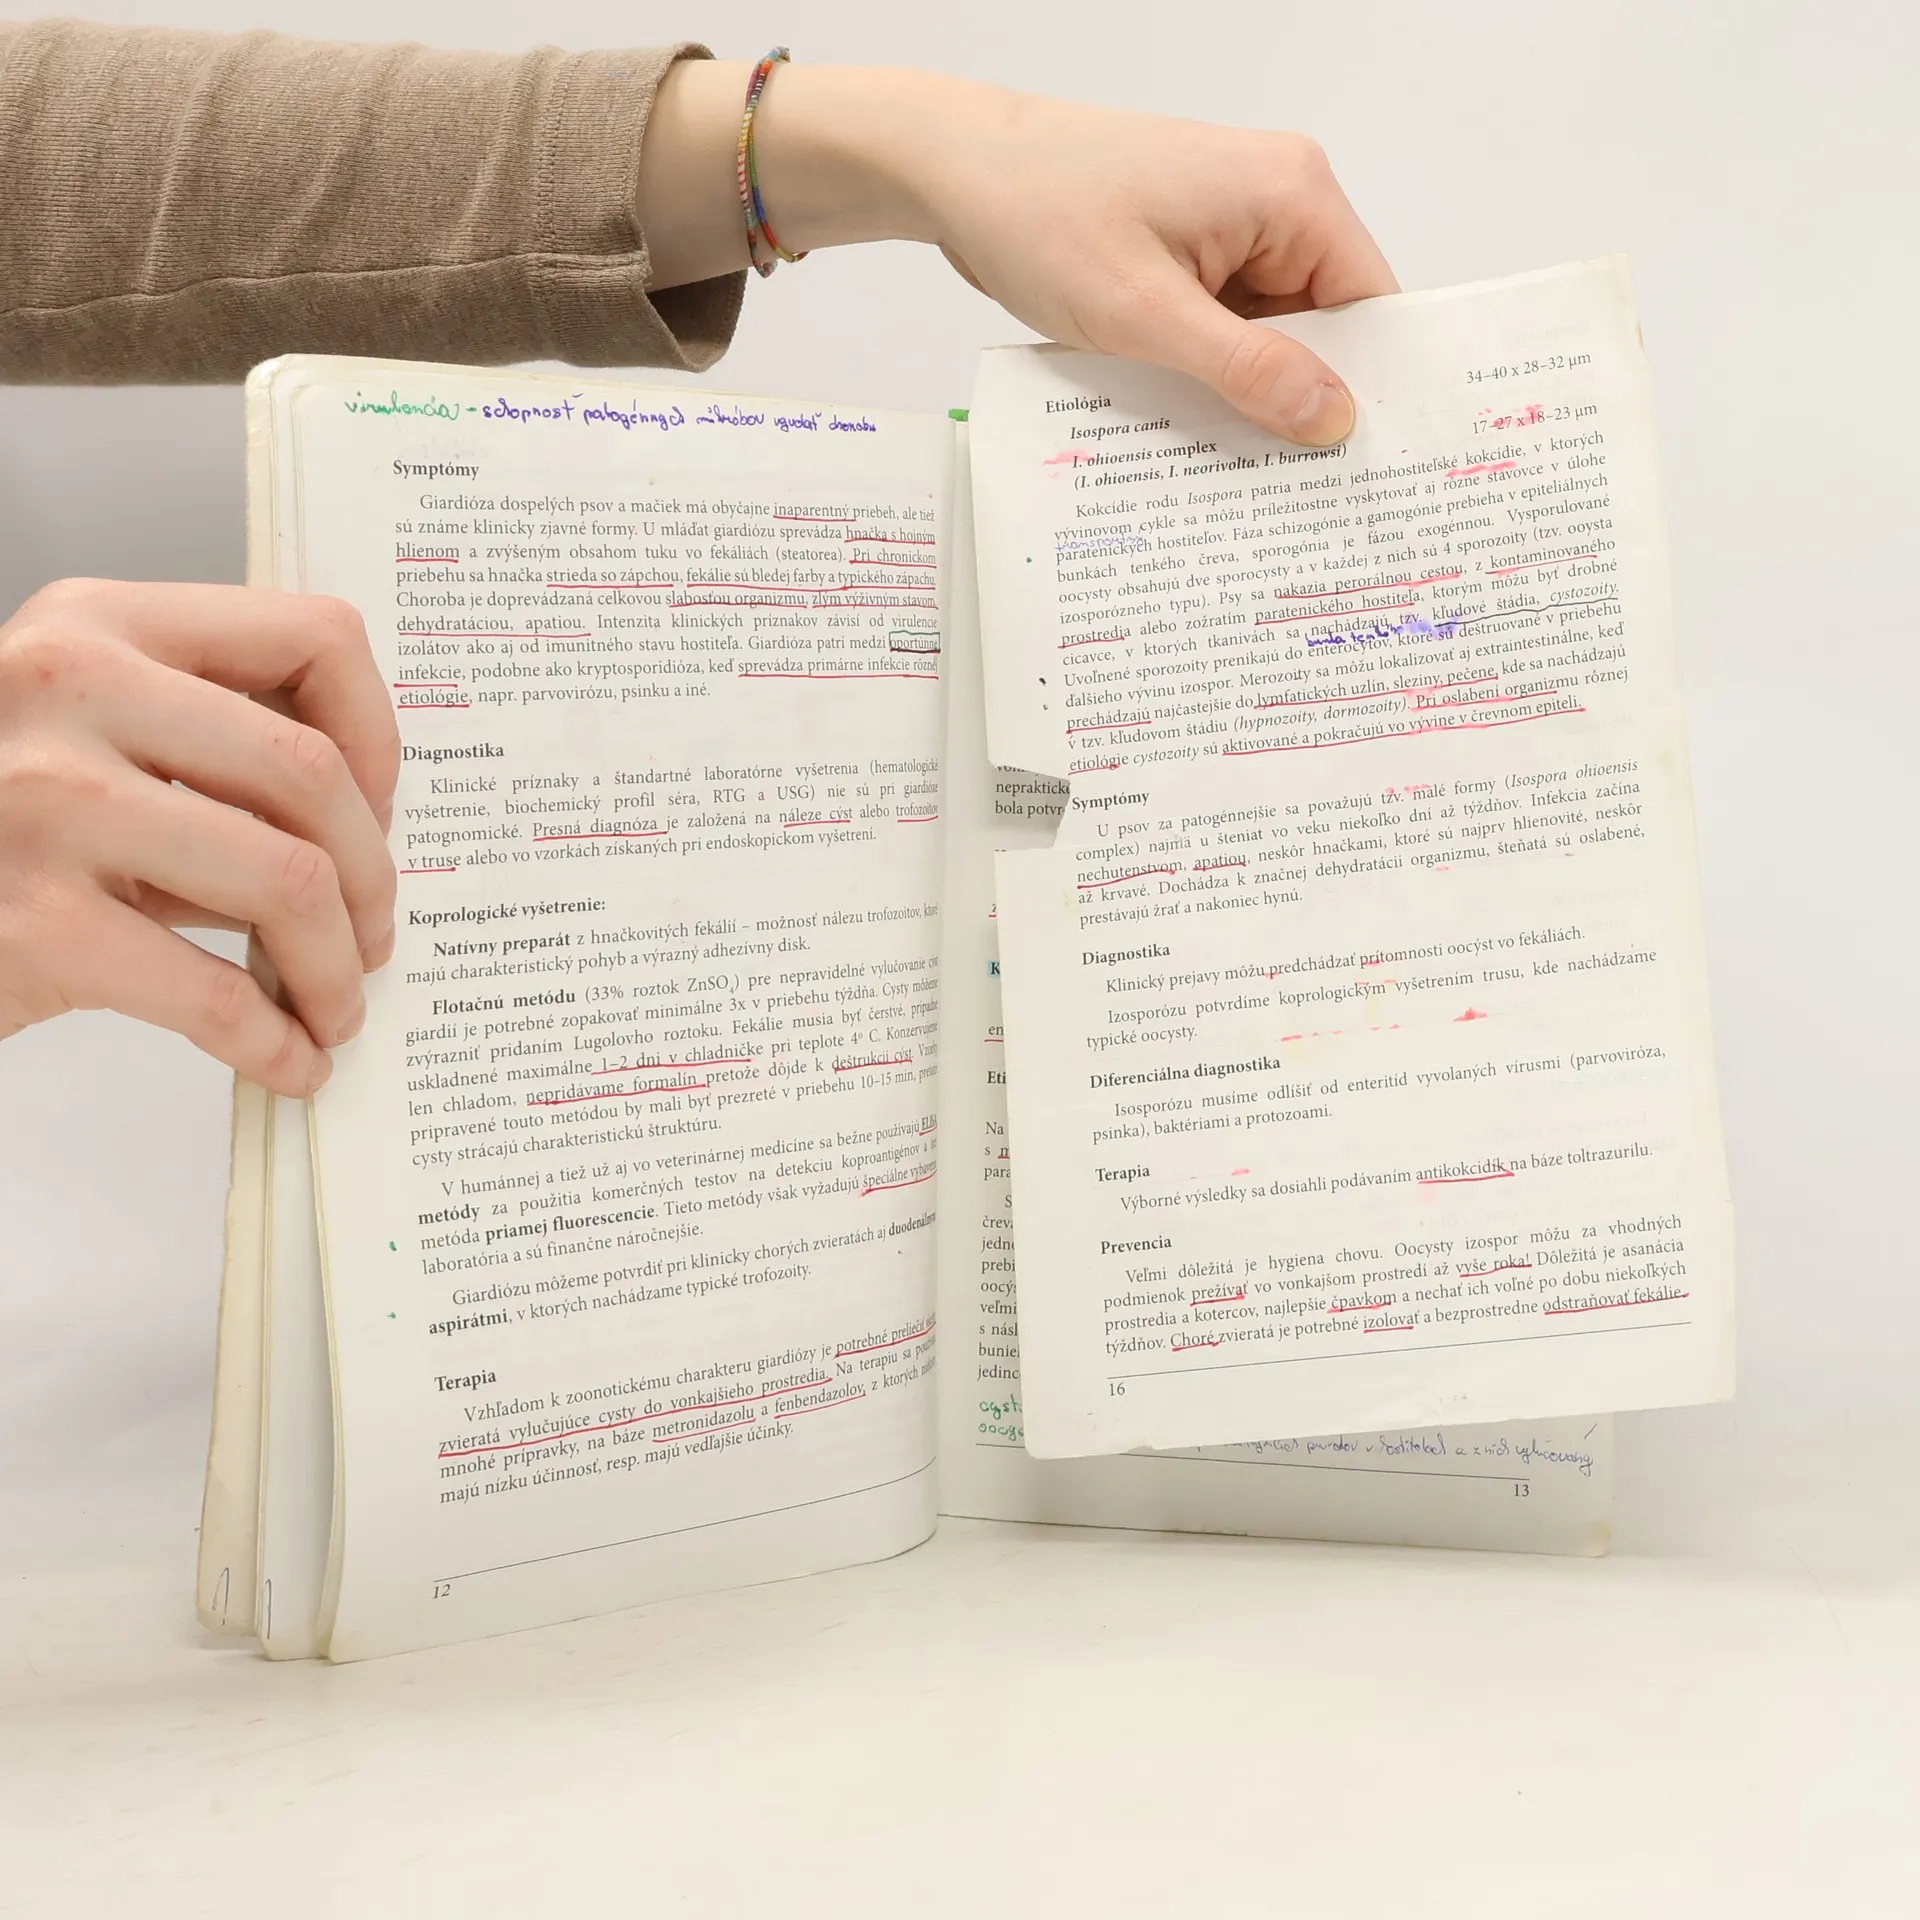 virulencia - schopnosť patogénnych mikróbov vyvolať chorobu
Symptómy
Giardióza dospelých psov a mačiek má obyčajne inaparentný priebeh, ale tiež
sú známe klinicky zjavné formy. U mláďat giardiózu sprevádza hnačka s hojným
hlienom a zvýšeným obsahom tuku vo fekáliách (steatorea). Pri chronickom
priebehu sa hnačka strieda so zápchou, fekálie sú bledej farby a typického zápachu.
Choroba je doprevádzaná celkovou slabosťou organizmu, zlým výživným stavom,
dehydratáciou, apatiou. Intenzita klinických príznakov závisí od virulencie
izolátov ako aj od imunitného stavu hostiteľa. Giardióza patrí medzi oportúnne
infekcie, podobne ako kryptosporidióza, keď sprevádza primárne infekcie rôznej
etiológie, napr. parvovirózu, psinku a iné.
Diagnostika
Klinické príznaky a štandartné laboratórne vyšetrenia (hematologické
vyšetrenie, biochemický profil séra, RTG a USG) nie sú pri giardióze
patognomické. Presná diagnóza je založená na náleze cýst alebo trofozoitov
v truse alebo vo vzorkách získaných pri endoskopickom vyšetrení.
Koprologické vyšetrenie:
Natívny preparát z hnačkovitých fekálií – možnosť nálezu trofozoitov, ktoré
majú charakteristický pohyb a výrazný adhezívny disk.
Flotačnú metódu (33% roztok ZnSO4) pre nepravidelné vylučovanie cýst
giardií je potrebné zopakovať minimálne 3x v priebehu týždňa. Cysty môžeme
zvýrazniť pridaním Lugolovho roztoku. Fekálie musia byť čerstvé, prípadne
uskladnené maximálne 1–2 dni v chladničke pri teplote 4° C. Konzervujeme
len chladom, nepridávame formalín pretože dôjde k deštrukcii cýst. Vzorky
pripravené touto metódou by mali byť prezreté v priebehu 10–15 min, pretože
cysty strácajú charakteristickú štruktúru.
V humánnej a tiež už aj vo veterinárnej medicíne sa bežne používajú ELISA
metódy za použitia komerčných testov na detekciu koproantigénov a tiež
metóda priamej fluorescencie. Tieto metódy však vyžadujú špeciálne vybavené
laboratória a sú finančne náročnejšie.
Giardiózu môžeme potvrdiť pri klinicky chorých zvieratách aj duodenálnymi
aspirátmi, v ktorých nachádzame typické trofozoity.
Terapia
Vzhľadom k zoonotickému charakteru giardiózy je potrebné preliečiť
zvieratá vylučujúce cysty do vonkajšieho prostredia. Na terapiu sa
mnohé prípravky, na báze metronidazolu a fenbendazolov, z ktorých
majú nízku účinnosť, resp. majú vedľajšie účinky.
12
Etiológia
Isospora canis 34–40 x 28–32 µm
I. ohioensis complex 17–27 x 18–23 µm
(I. ohioensis, I. neorivolta, I. burrowsi)
Kokcídie rodu Isospora patria medzi jednohostiteľské kokcídie, v ktorých
vývinovom cykle sa môžu príležitostne vyskytovať aj rôzne stavovce v úlohe
paratenických hostiteľov. Fáza schizogónie a gamogónie prebieha v epiteliálnych
bunkách tenkého čreva, sporogónia je fázou exogénnou. Vysporulované
oocysty obsahujú dve sporocysty a v každej z nich sú 4 sporozoity (tzv. ooysta
izosporózneho typu). Psy sa nakazia perorálnou cestou, z kontaminovaného
prostredia alebo zožratím paratenického hostiteľa, ktorým môžu byť drobné
cicavce, v ktorých tkanivách sa nachádzajú tzv. kľudové štádia, cystozoity.
Uvoľnené sporozoity prenikajú do enterocytov, ktoré sú deštruované v priebehu
ďalšieho vývinu izospor. Merozoity sa môžu lokalizovať aj extraintestinálne, keď
prechádzajú najčastejšie do lymfatických uzlín, sleziny, pečene, kde sa nachádzajú
v tzv. kľudovom štádiu (hypnozoity, dormozoity). Pri oslabení organizmu rôznej
etiológie cystozoity sú aktivované a pokračujú vo vývine v črevnom epiteli.
Symptómy
U psov za patogénnejšie sa považujú tzv. malé formy (Isospora ohioensis
complex) najmä u šteniat vo veku niekoľko dní až týždňov. Infekcia začína
nechutenstvom, apatiou, neskôr hnačkami, ktoré sú najprv hlienovité, neskôr
až krvavé. Dochádza k značnej dehydratácii organizmu, šteňatá sú oslabené,
prestávajú žrať a nakoniec hynú.
Diagnostika
Klinický prejavy môžu predchádzať prítomnosti oocýst vo fekáliách.
Izosporózu potvrdíme koprologickým vyšetrením trusu, kde nachádzame
typické oocysty.
Diferenciálna diagnostika
Isosporózu musíme odlíšiť od enteritíd vyvolaných vírusmi (parvoviróza,
psinka), baktériami a protozoami.
Terapia
Výborné výsledky sa dosiahli podávaním antikokcidík na báze toltrazurilu.
Prevencia
Veľmi dôležitá je hygiena chovu. Oocysty izospor môžu za vhodných
podmienok prežívať vo vonkajšom prostredí až vyše roka! Dôležitá je asanácia
prostredia a kotercov, najlepšie čpavkom a nechať ich voľné po dobu niekoľkých
týždňov. Choré zvieratá je potrebné izolovať a bezprostredne odstraňovať fekálie.
16
nepraktick
bola potvr
K
en
Eti
Na
s n
para
S
črev
jedn
prebi
oocys
veľmi
s násl
bunie
jedinc
cyst
oocy
13